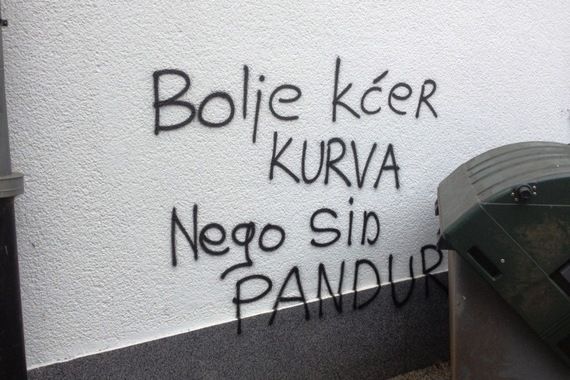 Bolje kćer
KURVA
Nego SiN
PANDUR